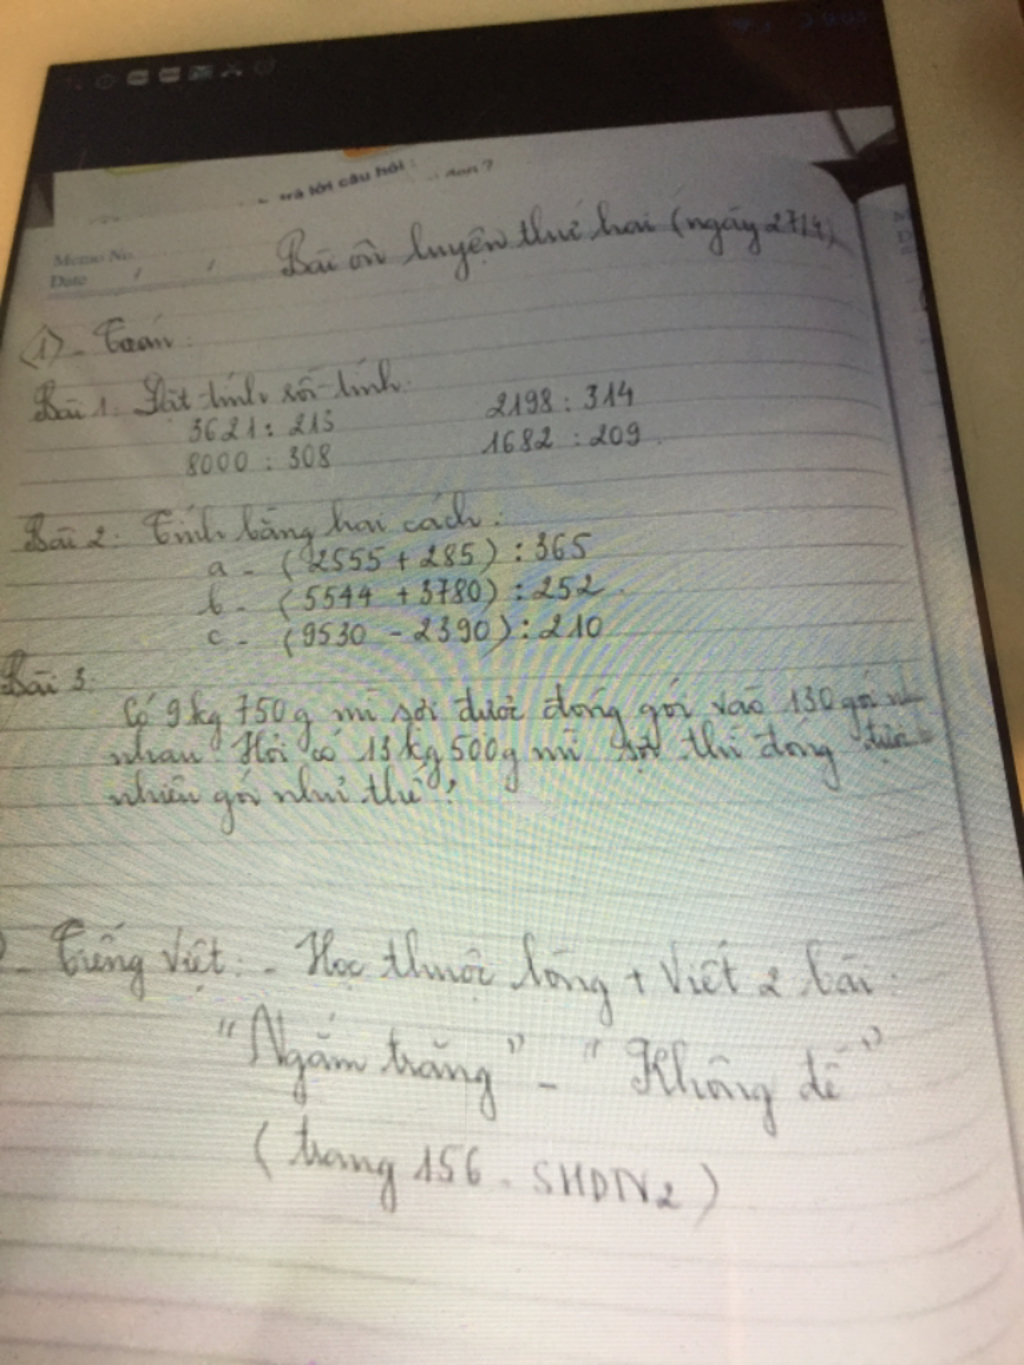 trả lời câu hỏi:
Memo No.
Date / /
Bài ôn luyện thứ hai (ngày 27/4)
(1) - Toán:
Bài 1. Đặt tính rồi tính:
3621 : 213 2198 : 314
8000 : 308 1682 : 209.
Bài 2. Tính bằng hai cách:
a - (2555 + 285) : 365
b - (5544 + 3780) : 252.
c - (9530 - 2390) : 210
Bài 3.
Có 9kg 750g mì sợi được đóng gói vào 130 gói
nhau. Hỏi có 13kg 500g mì sợi thì đóng được
nhiêu gói như thế?
- Tiếng Việt: - Học thuộc lòng + Viết 2 bài:
"Ngắm trăng" - "Không đề"
(trang 156 - SHDTV2)